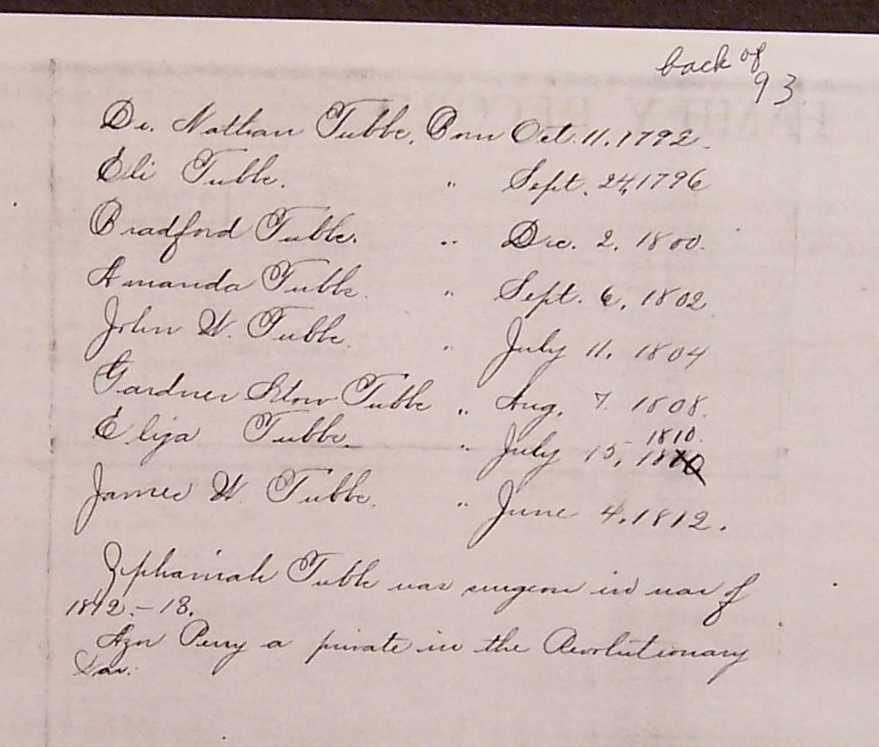 back of
93
Dr. Nathan Tubbs, Born Oct. 11, 1792.
Eli Tubbs. " Sept. 24, 1796
Bradford Tubbs. " Dec. 2, 1800.
Amanda Tubbs. " Sept. 6, 1802
John W. Tubbs. " July 11, 1804
Gardner Stow Tubbs " Aug. 7. 1808.
1810.
Eliza Tubbs. " July 15, 1810
James W. Tubbs. " June 4, 1812.
Zephaniah Tubbs was surgeon in war of
1812.-13.
Azor Perry a private in the Revolutionary
War.
FAMILY RECORD